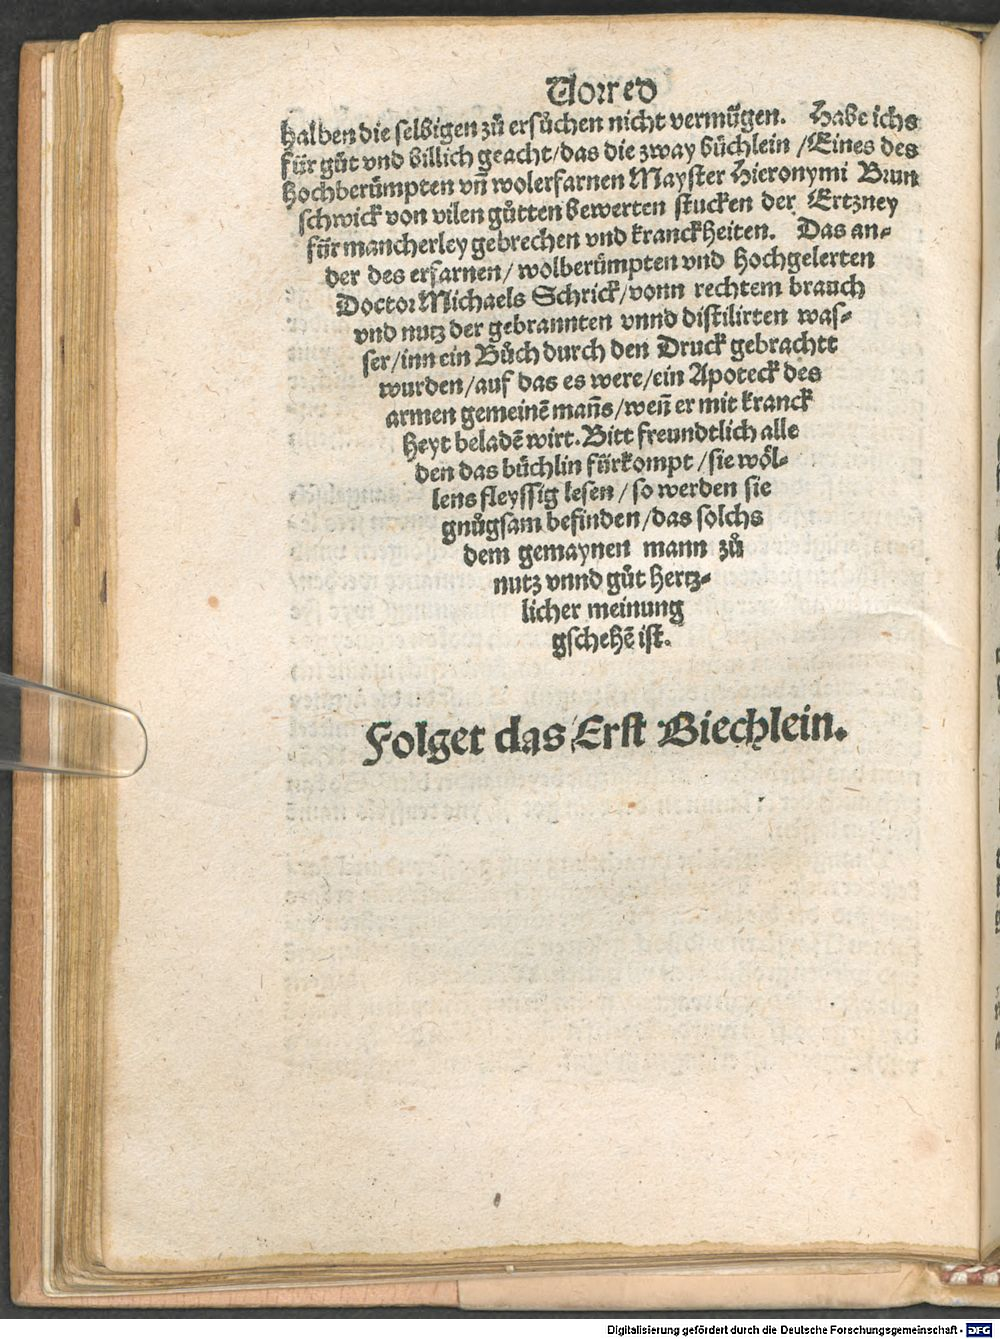 Vorred
halben die selbigen zů ersůchen nicht vermügen. Habe ichs
für gůt vnd billich geacht/das die zway büchlein /Eines des
hochberůmpten vñ wolerfarnen Mayster Hieronymi Brun
schwick von vilen gůtten bewerten stucken der Ertzney
für mancherley gebrechen vnd kranckheiten. Das an-
der des erfarnen/ wolberůmpten vnd hochgelerten
Doctor Michaels Schrick/vonn rechtem brauch
vnd nutz der gebrannten vnnd distilirten was-
ser/inn ein Bůch durch den Druck gebrachtt
wurden/auf das es were/ein Apoteck des
armen gemeinē mañs/weñ er mit kranck
heyt beladē wirt. Bitt freundtlich alle
den das büchlin fürkompt /sie wöl-
lens fleyssig lesen/so werden sie
gnůgsam befinden/das solchs
dem gemaynen mann zů
nutz vnnd gůt hertz-
licher meinung
gschehē ist.
Folget das Erst Biechlein.
Digitalisierung gefördert durch die Deutsche Forschungsgemeinschaft - DFG